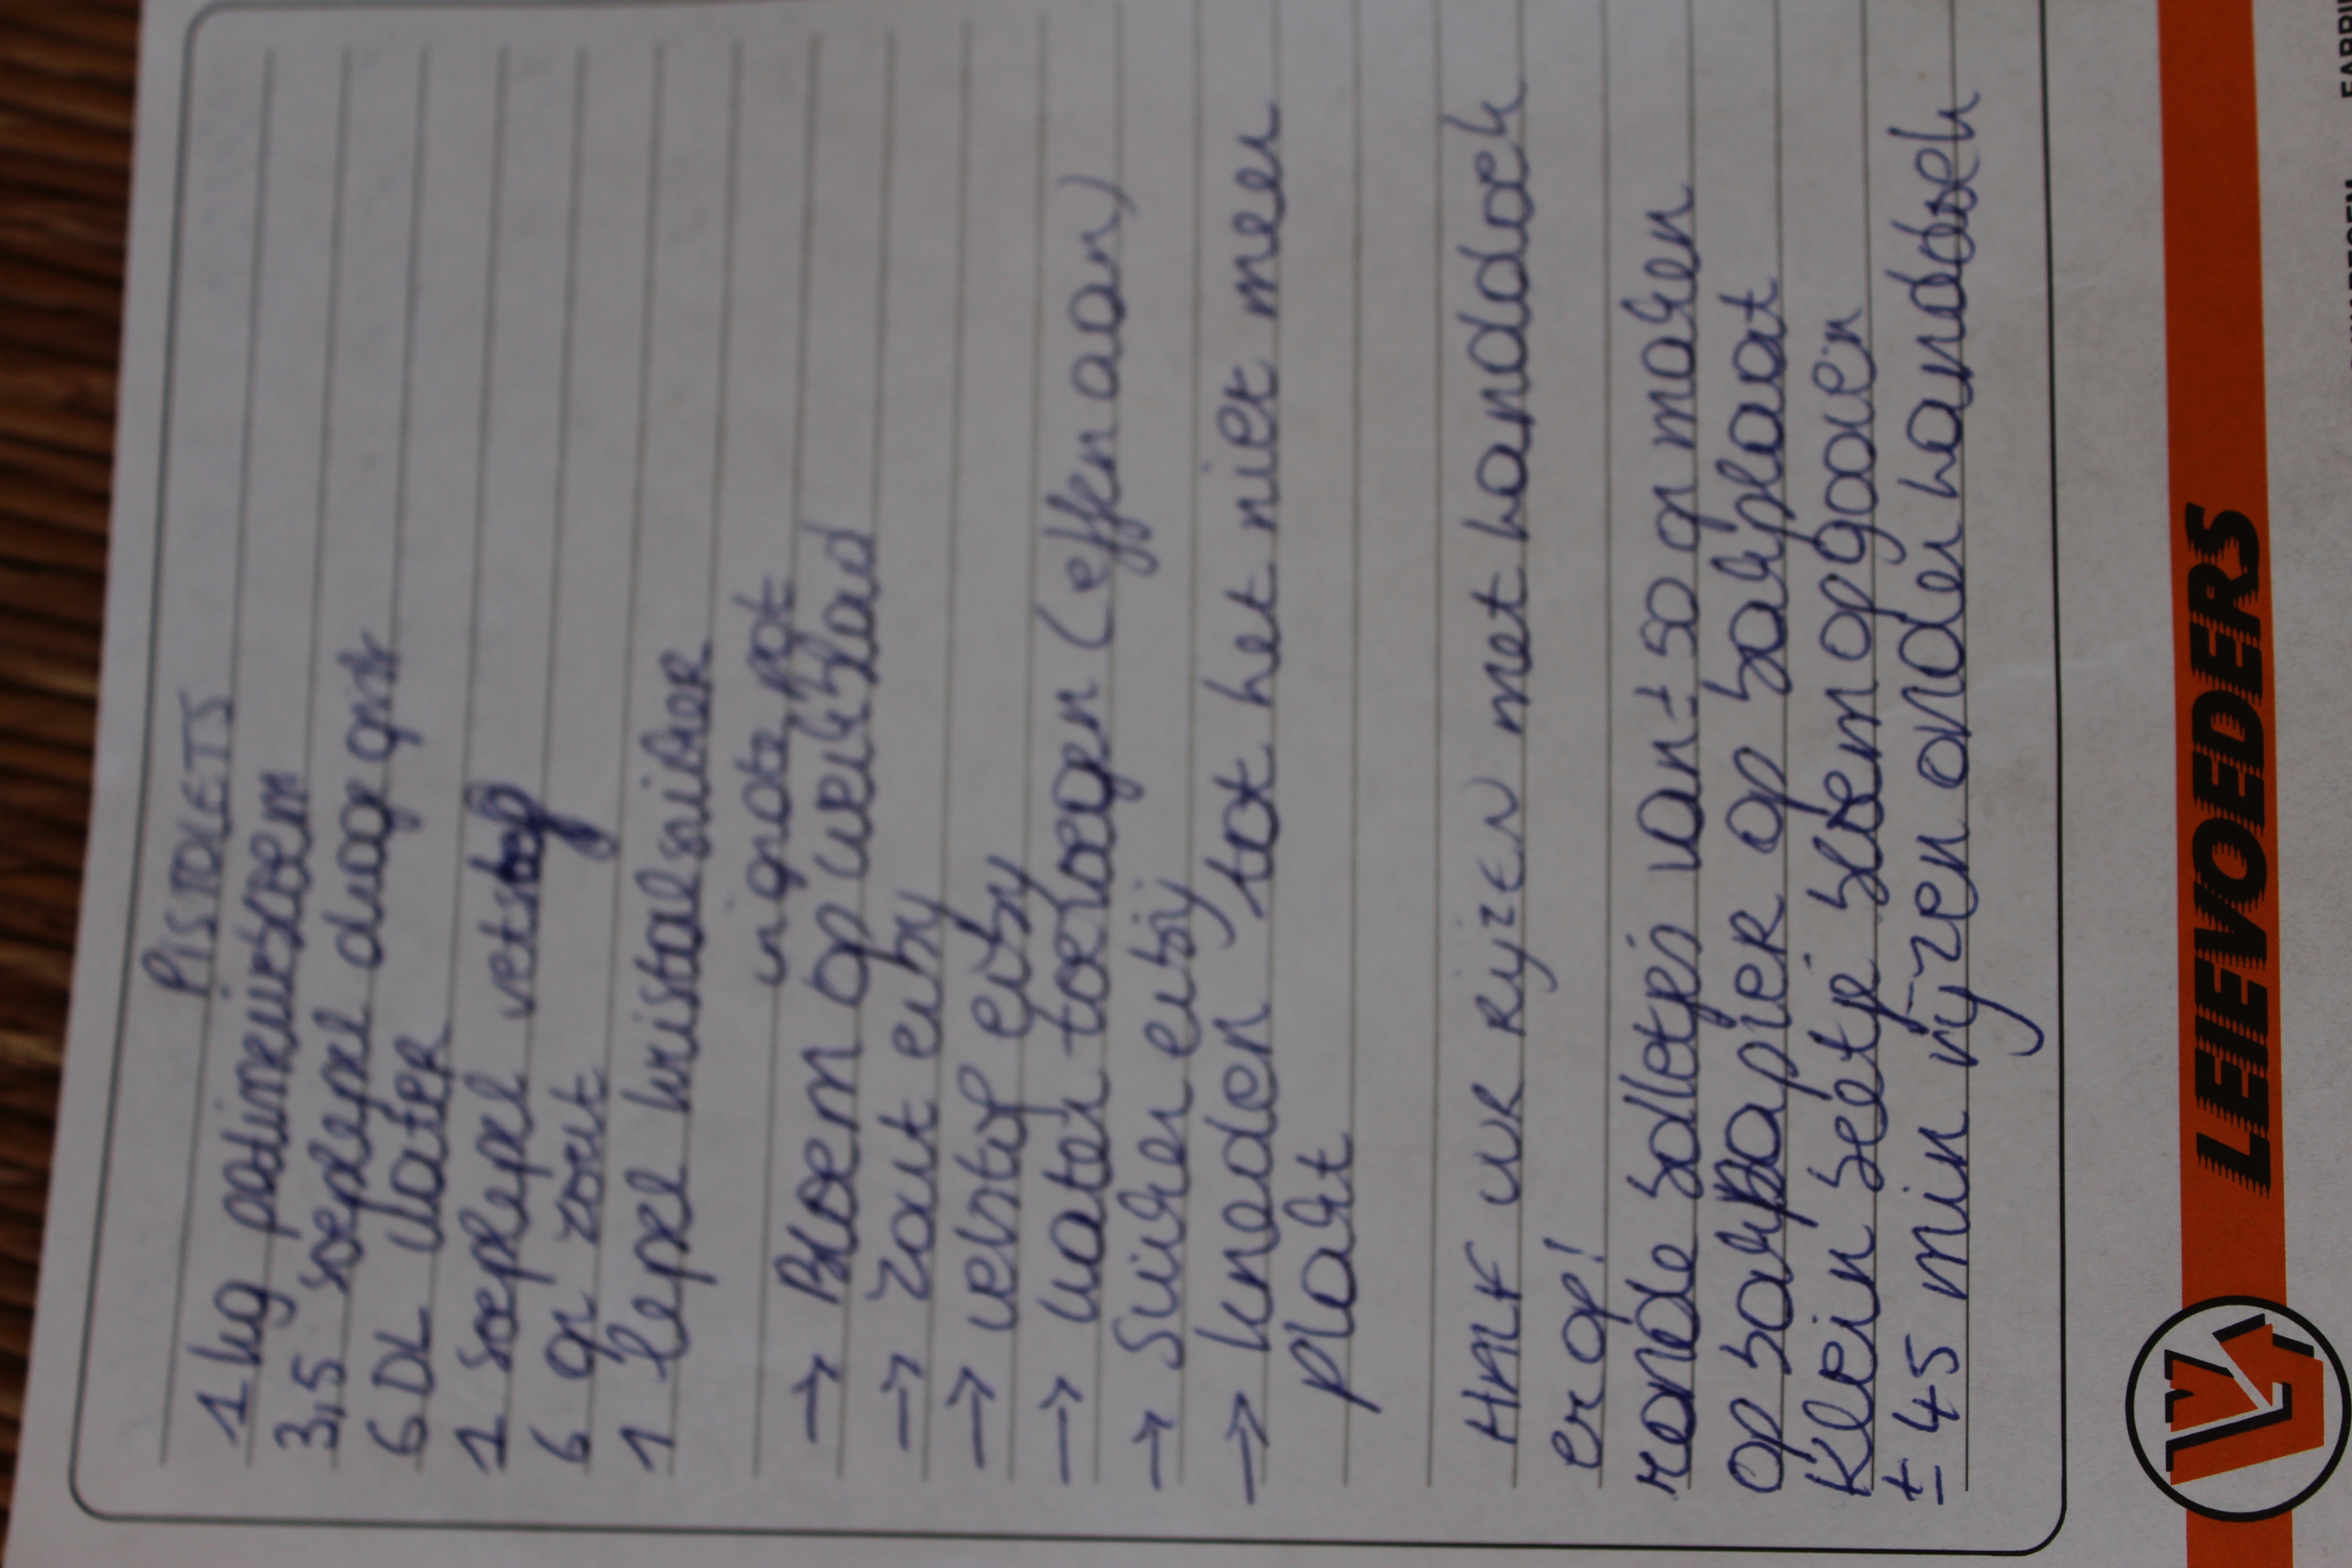 PISTOLETS
1 kg patinneirbloem
3,5 soeplepel droge gist
6 DL water
1 soeplepel vetstof
6 gr zout
1 lepel kristalsuiker
in grote pot
→ Bloem op werkblad
→ zout erbij
→ vetstof erbij
→ water toevoegen (effenaan)
→ Suiker erbij
→ kneden tot het niet meer
plakt
HALF UUR RIJZEN met handdoek
erop!
ronde bolletjes van ± 50 gr maken
op bakpapier op bakplaat
Klein beetje bloem opgooien
± 45 min rijzen onder handdoek
LEIEVODERS